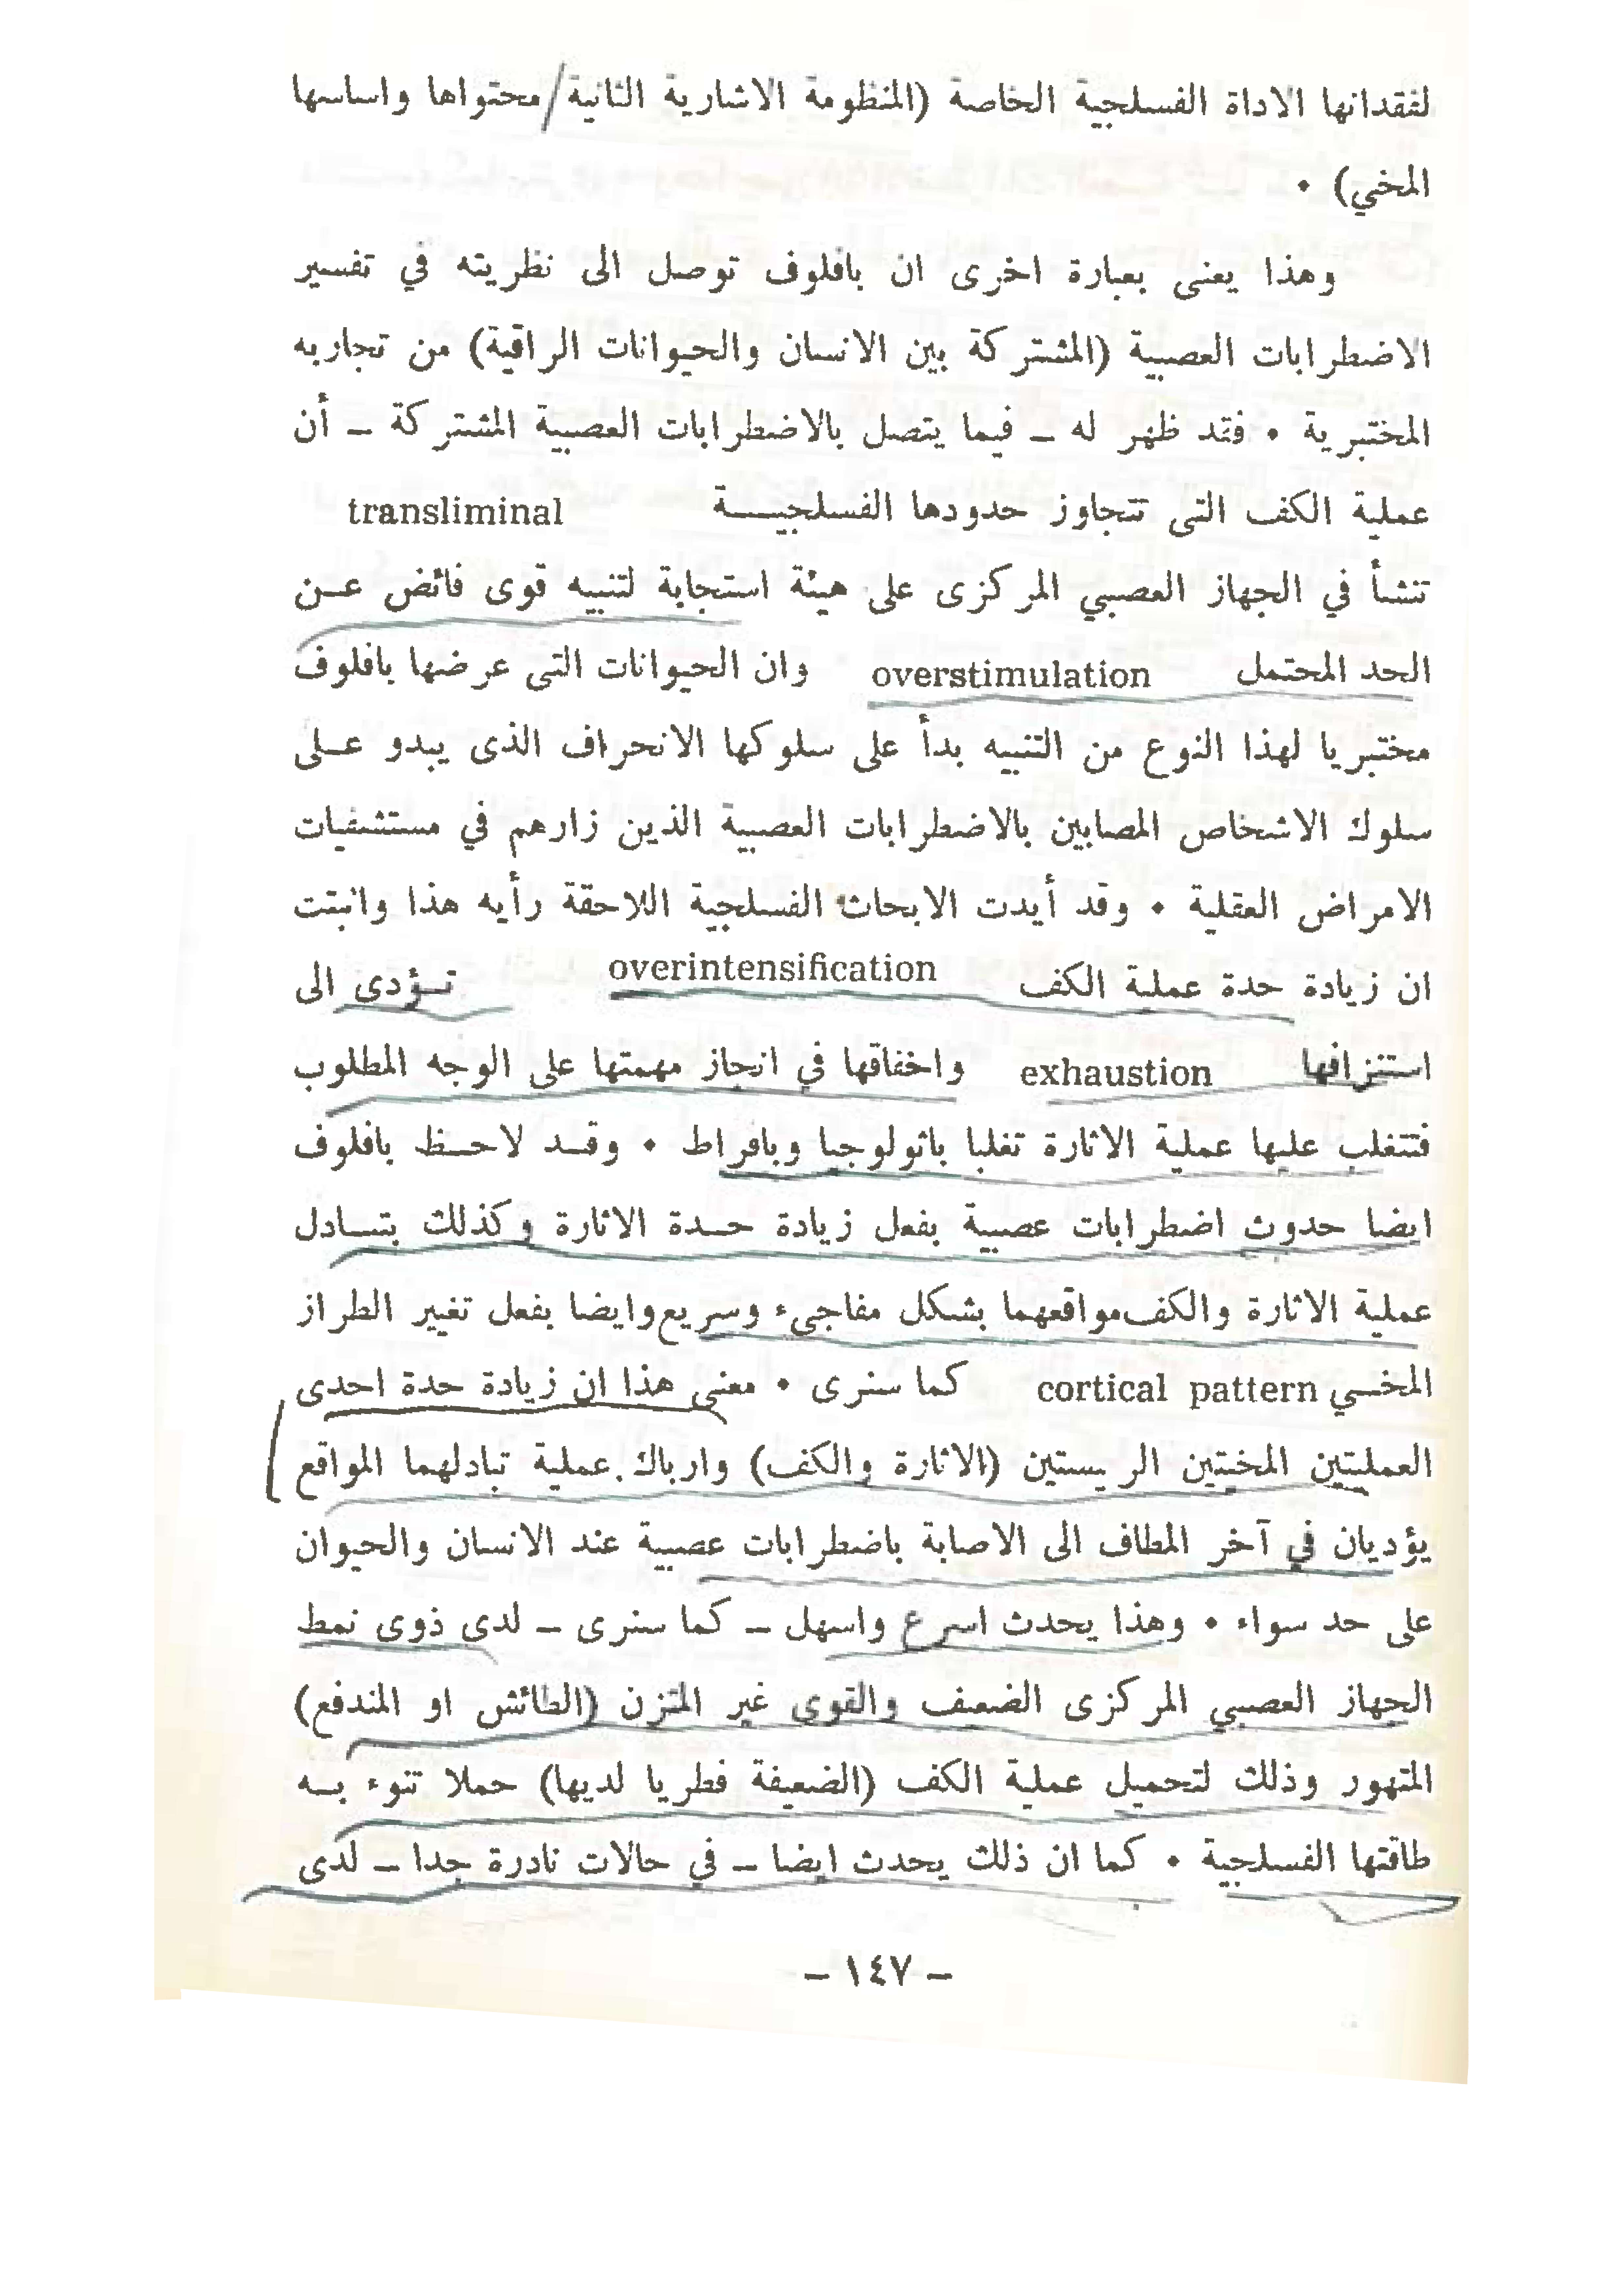 لفقدانها الاداة الفسلجية الخاصة (المنظومة الاشارية الثانية/محتواها واساسها
المخي) •
وهذا يعنى بعبارة اخرى ان بافلوف توصل الى نظريته في تفسير
الاضطرابات العصبية (المشتركة بين الانسان والحيوانات الراقية) من تجاربه
المختبرية • فقد ظهر له ــ فيما يتصل بالاضطرابات العصبية المشتركة ــ أن
عملية الكف التى تتجاوز حدودها الفسلجيـــة transliminal
تنشأ في الجهاز العصبي المركزى على هيئة استجابة لتنبيه قوى فائض عـن
الحد المحتمل overstimulation وان الحيوانات التى عرضها بافلوف
مختبريا لهذا النوع من التنبيه بدأ على سلوكها الانحراف الذى يبدو عـلى
سلوك الاشخاص المصابين بالاضطرابات العصبية الذين زارهم في مستشفيات
الامراض العقلية • وقد أيدت الابحاث الفسلجية اللاحقة رأيه هذا واثبتت
ان زيادة حدة عملية الكف overintensification تـؤدى الى
استنزافها exhaustion واخفاقها في انجاز مهمتها على الوجه المطلوب
فتتغلب عليها عملية الاثارة تغلبا باثولوجيا وبافراط • وقـد لاحـظ بافلوف
ايضا حدوث اضطرابات عصبية بفعل زيادة حـدة الاثارة وكذلك بتبـادل
عملية الاثارة والكف مواقعهما بشكل مفاجىء وسريع وايضا بفعل تغيير الطراز
المخـي cortical pattern كما سنرى • معنى هذا ان زيادة حدة احدى
العمليتين المخيتين الريستين (الاثارة والكف) وارباك عملية تبادلهما المواقع
يؤديان في آخر المطاف الى الاصابة باضطرابات عصبية عند الانسان والحيوان
على حد سواء • وهذا يحدث اسرع واسهل ــ كما سنرى ــ لدى ذوى نمط
الجهاز العصبي المركزى الضعيف والقوى غير المتزن (الطائش او المندفع)
المتهور وذلك لتحميل عملية الكف (الضعيفة فطريا لديها) حملا تنوء بـه
طاقتها الفسلجية • كما ان ذلك يحدث ايضا ــ في حالات نادرة جدا ــ لدى
– ١٤٧ –